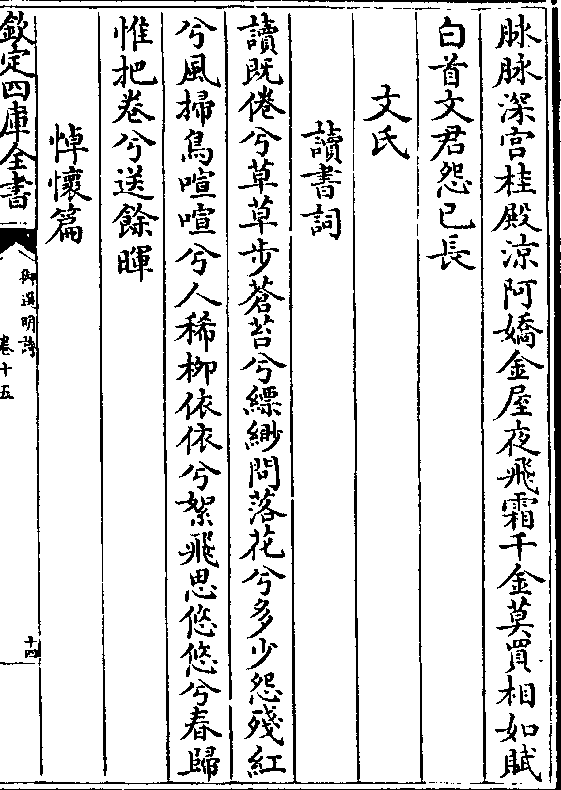 脉脉深宫桂殿涼阿嬌金屋夜飛霜千金莫買相如賦
白首文君怨已長
文氏
讀書詞
讀既倦兮草草步蒼苔兮縹緲問落花兮多少怨殘紅
兮風掃鳥喧喧兮人稀柳依依兮絮飛思悠悠兮春歸
惟把卷兮送餘暉
悼懷篇
欽定四庫全書
御選明詩
卷十五
十四